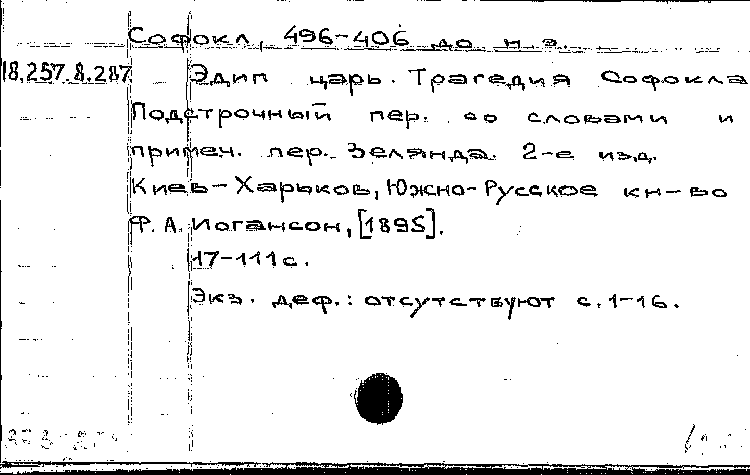 Софокл, 496-406 до н.э.
18.257.8.287 Эдип царь. Трагедия Софокла
Подстрочный пер. со словами и
примеч. пер. Зелянда. 2-е изд.
Киев-Харьков, Южно-Русское кн-во
Ф.А. Иогансон, [1895].
17-111с.
Экз. деф.: отсутствуют с.1-16.